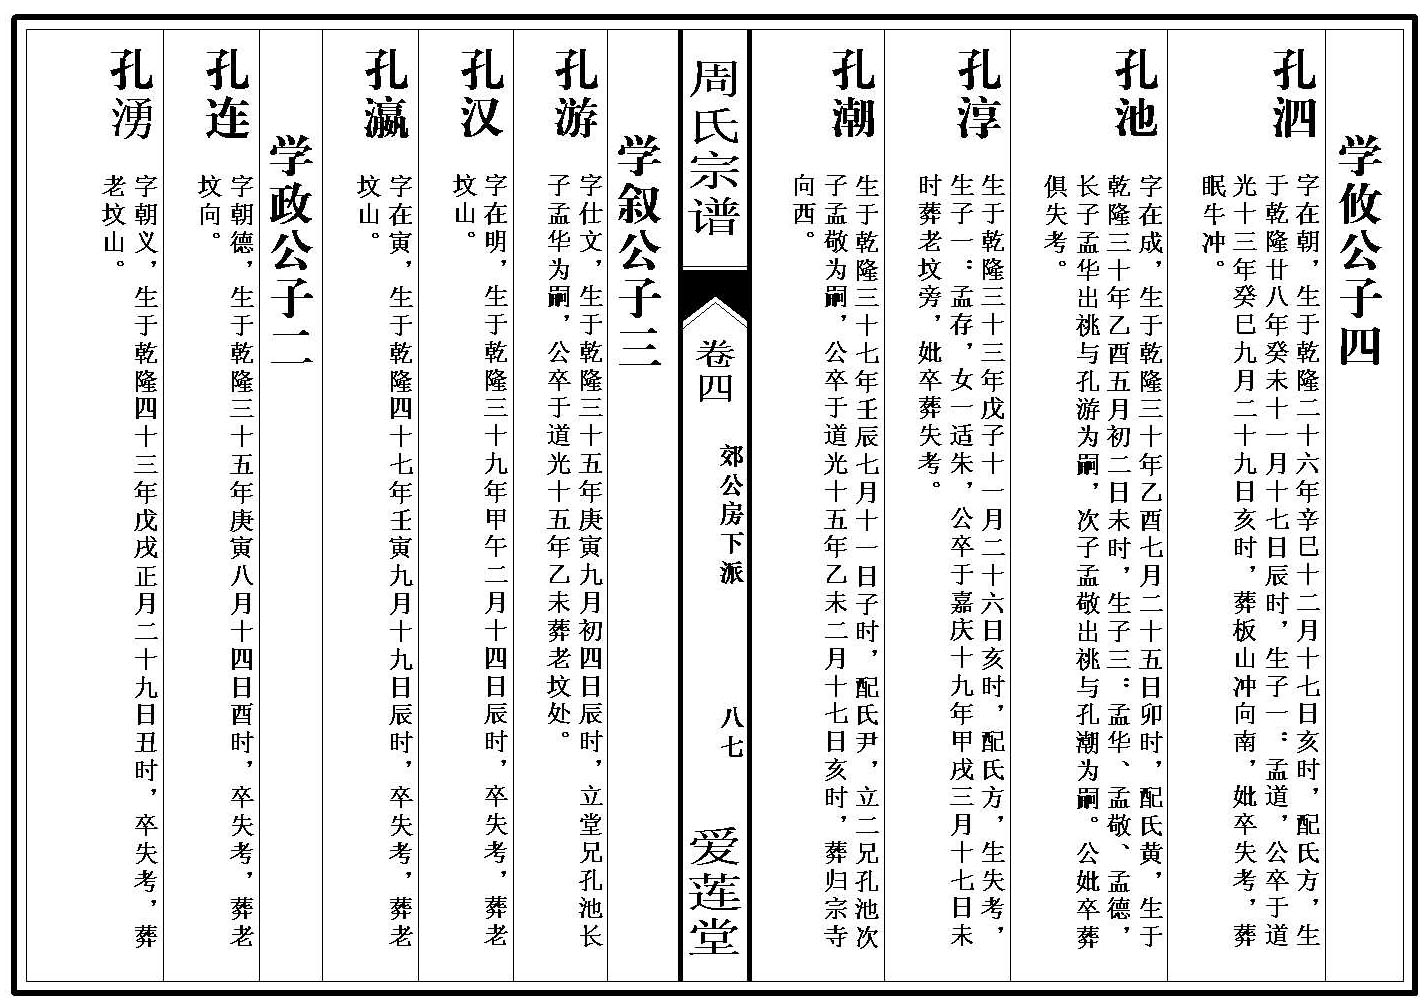 学攸公子四
孔泗
字在朝，生于乾隆二十六年辛巳十二月十七日亥时，配氏方，生
于乾隆廿八年癸未十一月十七日辰时，生子一：孟道，公卒于道
光十三年癸巳九月二十九日亥时，葬板山冲向南，妣卒失考，葬
眠牛冲。
孔池
字在成，生于乾隆三十年乙酉七月二十五日卯时，配氏黄，生于
乾隆三十年乙酉五月初二日未时，生子三：孟华、孟敬、孟德，
长子孟华出祧与孔游为嗣，次子孟敬出祧与孔潮为嗣。公妣卒葬
俱失考。
孔淳
生于乾隆三十三年戊子十一月二十六日亥时，配氏方，生失考，
生子一：孟存，女一适朱，公卒于嘉庆十九年甲戌三月十七日未
时葬老坟旁，妣卒葬失考。
孔潮
生于乾隆三十七年壬辰七月十一日子时，配氏尹，立二兄孔池次
子孟敬为嗣，公卒于道光十五年乙未二月十七日亥时，葬归宗寺
向西。
周氏宗谱
卷四
郊公房下派
八七
爱莲堂
学叙公子三
孔游
字仕文，生于乾隆三十五年庚寅九月初四日辰时，立堂兄孔池长
子孟华为嗣，公卒于道光十五年乙未葬老坟处。
孔汉
字在明，生于乾隆三十九年甲午二月十四日辰时，卒失考，葬老
坟山。
孔瀛
字在寅，生于乾隆四十七年壬寅九月十九日辰时，卒失考，葬老
坟山。
学政公子二
孔连
字朝德，生于乾隆三十五年庚寅八月十四日酉时，卒失考，葬老
坟向。
孔湧
字朝义，生于乾隆四十三年戊戌正月二十九日丑时，卒失考，葬
老坟山。